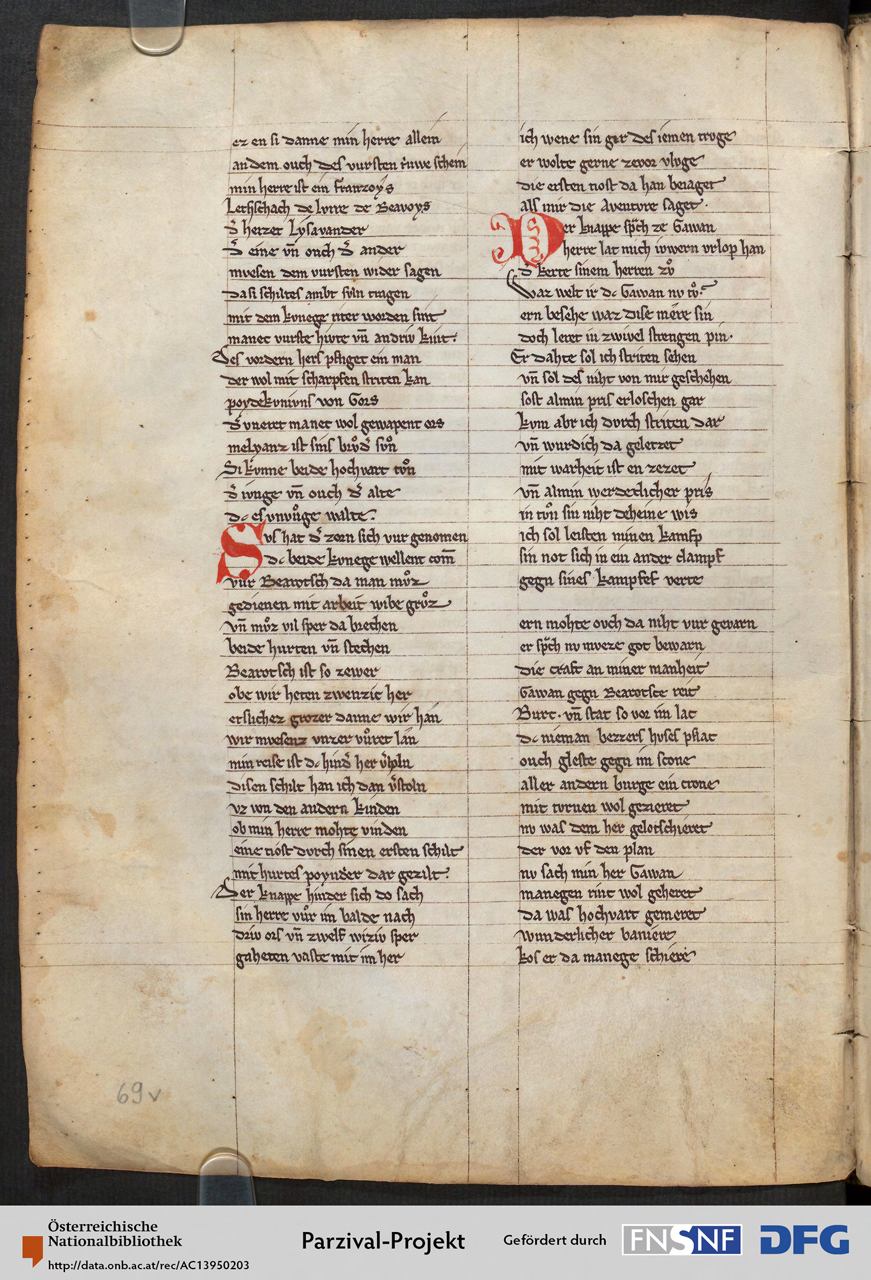 ez en si danne min herre allein
an dem ouch des vursten rivwe schein
min herre ist ein franzoys
Lethschach de lyrre de Beavoys
d̄ heizet Lysavander
d̄ eine vn̄ ouch d̄ ander
mvesen dem vursten wider sagen
da si schiltes ambt svln tragen
mit dem kvnege riter worden sint
manec vurste hivte vn̄ andriv kint.
Des vordern hers pfliget ein man
der wol mit scharpfen striten kan
poydekvnivns von Gors
d̄ vueret manec wol gewapent ors
melyanz ist sins brůd̄ sůn
Si kvnne beide hochvart tůn
d̄ ivnge vn̄ ouch d̄ alte
dc es vnvůge walte.
Svs hat d̄ zorn sich vur genomen
dc beide kvnege wellent com̄
vur Bearotsch da man můz
gedienen mit arbeit wibe grůz
vn̄ můz vil sper da brechen
beide hurten vn̄ stechen
Bearotsch ist so zewer
obe wir heten zwenzic her
etslichez grozer danne wir han
wir mvesenz vnzervůret lan
min reise ist dc hind̄ her v̄holn
disen schilt han ich dan v̄stoln
vz von den andern kinden
ob min herre mohte vinden
eine tiost dvrch sinen ersten schilt
mit hurtes poynd̄er dar gezilt.
Der knappe hinder sich do sach
sin herre vůr im balde nach
driv ors vn̄ zwelf wiziv sper
gaheten vaste mit im her
ich wene sin gir des iemen troge
er wolte gerne zevor vlvge
die ersten tiost da han beiaget
alss mir die Aventvre saget.
Der knappe sp̄ch ze Gawan
herre lat mich ivwern vrlop han
d̄ kerte sinem herren zů
Waz welt ir dc Gawan nv tů.
ern besehe waz dise mere sin
doch leret in zwivel strengen pin.
Er dahte sol ich striten sehen
vn̄ sol des niht von mir geschehen
sost al min pris erloschen gar
kvm abr ich dvrch striten dar
vn̄ wurdich da geletzet
mit warheit ist en zezet
vn̄ al min werdeclicher pris
in tůn sin niht deheine wis
ich sol leisten minen kampf
sin not sich in ein ander clampf
gegn sines kampfes verte
ern mohte ovch da niht vur gevarn
er sp̄ch nv mveze got bewarn
die craft an miner manheit
Gawan gegn Bearotsce reit
Burc. vn̄ stat so vor im lac
dc nieman bezzers hvses pflac
ouch gleste gegn im scone
aller andern burge ein crone
mit tvrnen wol gezieret
nv was dem her gelotschieret
der vor vf den plan
nv sach min her Gawan
manegen rinc wol geheret
da was hochvart gemeret
wunderlicher baniere
kos er da manege schiere
69v
Österreichische
Nationalbibliothek
http://data.onb.ac.at/rec/AC13950203
Parzival-Projekt
Gefördert durch
FNSNF
DFG